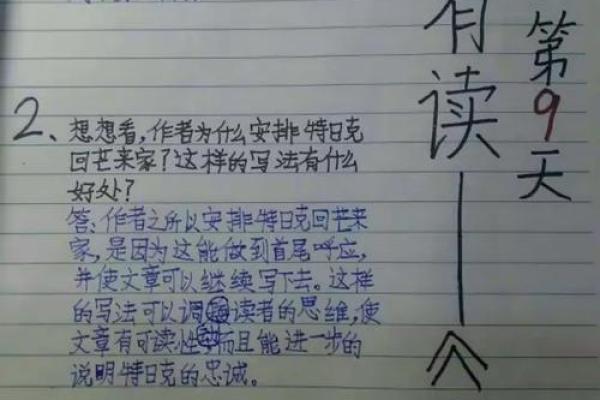 2、想想看,作者为什么安排特日克
回芒来家?这样的写法有什么
好处?
答、作者之所以安排特日克回芒来
家,是因为这能做到首尾呼应,
并使文章可以继续写下去。这样
的写法可以调 读者的思维,使
文章有可读性,而且能进一步的
说明特日克的忠诚。
读
第9天